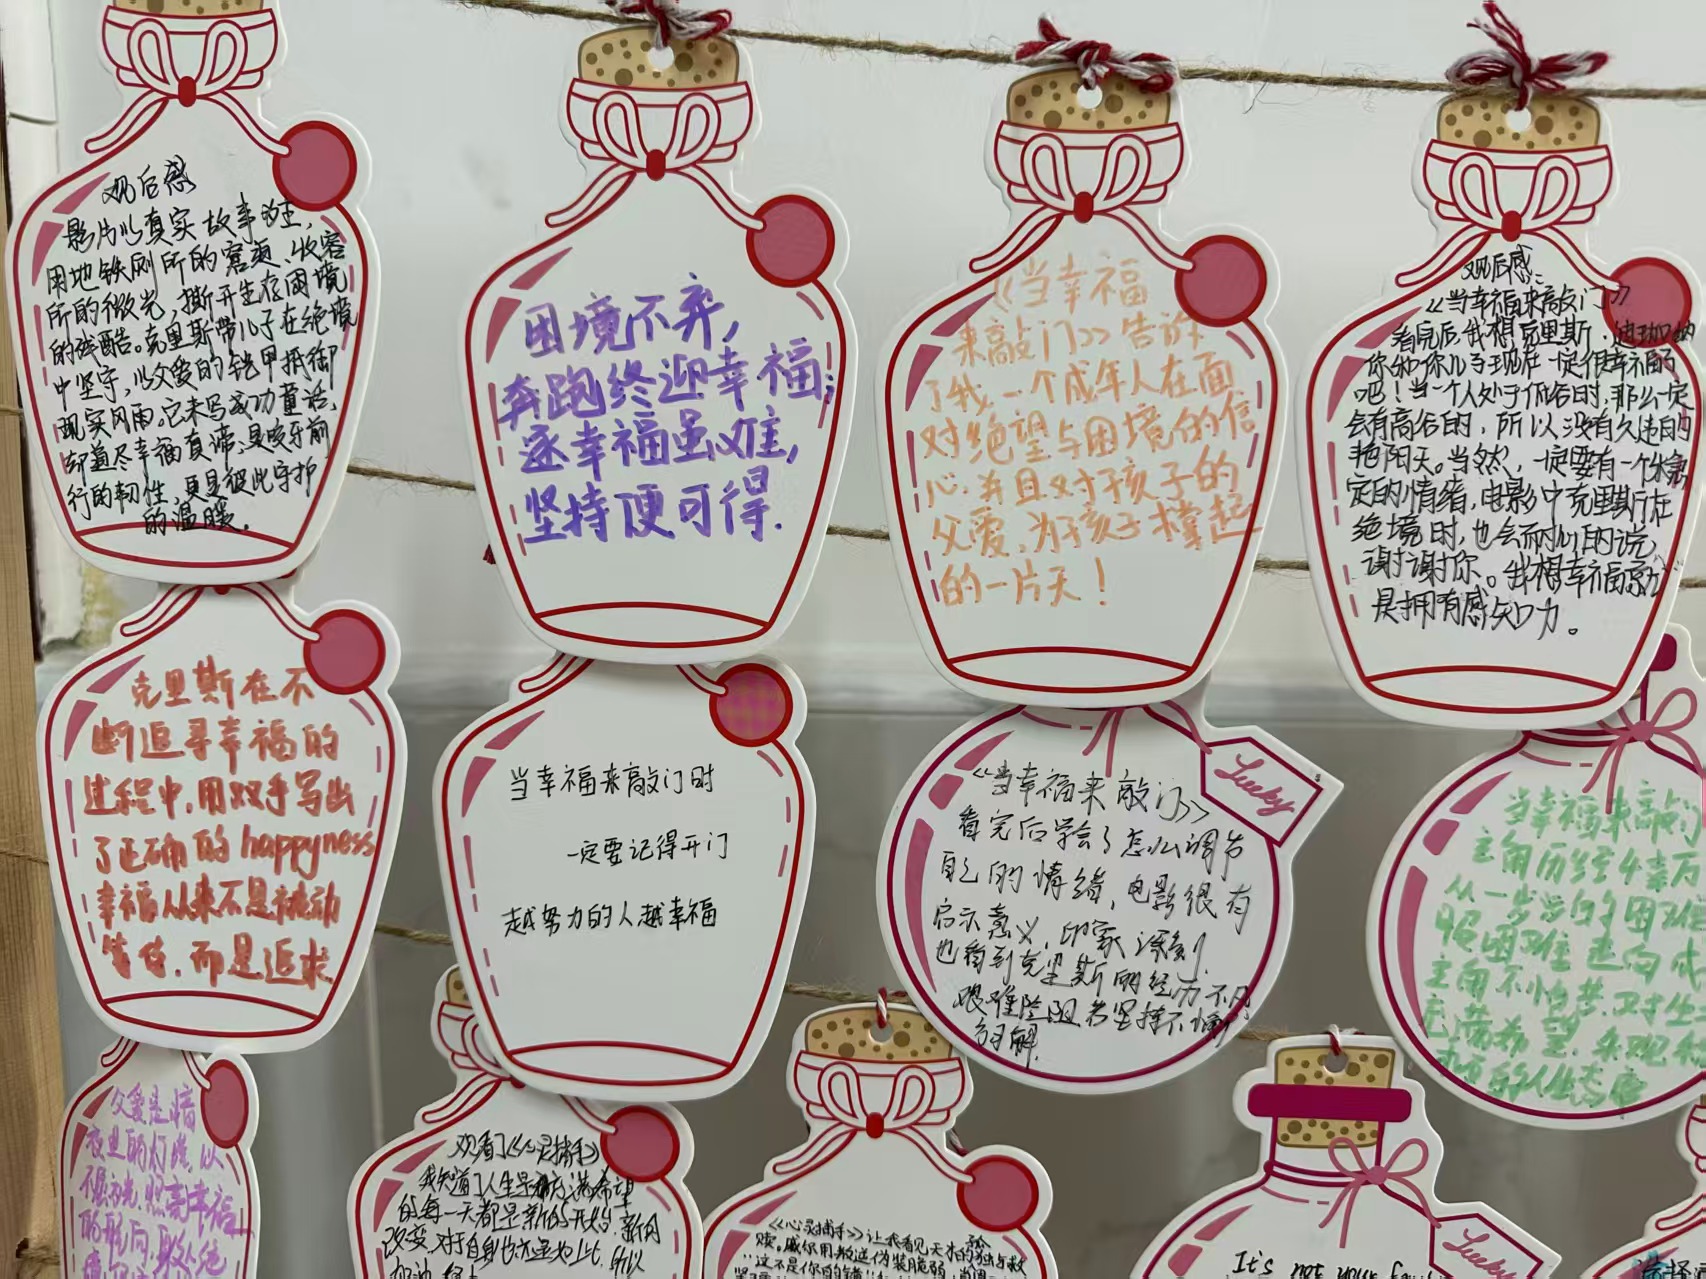 观后感
影片以真实故事为王,
用地铁厕所的窘迫、收容
所的微光,撕开生存困境
的残酷。克里斯带儿子在绝境
中坚守,以父爱的铠甲抵御
现实风雨。它未写成功童话,
却道尽幸福真谛,是咬牙前
行的韧性,更是彼此守护
的温暖。
困境不弃,
奔跑终迎幸福;
逐幸福虽难,
坚持便可得.
《当幸福
来敲门》告诉
了我,一个成年人在面
对绝望与困境的信
心,并且对于孩子的
父爱,为孩子撑起
的一片天!
观后感
《当幸福来敲门》
看完后我想克里斯·迦纳
你和你儿子现在一定很幸福
吧!当一个人处于低谷时,那么一定
会有高谷的,所以没有久违的
艳阳天。当然,一定要有一个
定的情绪,电影中克里斯在
绝境时,也会耐心的说,
谢谢你。我想幸福
是拥有感知力。
克里斯在不
断追寻幸福的
过程中,用双手写出
了正确的happyness
幸福从来不是被动
等待,而是追求
当幸福来敲门时
一定要记得开门
越努力的人越幸福
《当幸福来敲门》
看完后学会了怎么调节
自己的情绪,电影很有
启示意义,印象深刻,
也看到克里斯的经历不凡
艰难险阻若坚持不懈
Lucky
当幸福来敲门
主角历经千辛万
从一步步的困难
服困难走向成
主角不怕苦,对生
充满希望,乐观积
的人生态度
父爱是暗
夜里的灯塔,以
照亮幸福
的航向,身处绝
观看了《心灵捕手》
我知道了人生是充满希望
的每一天都是新的开始,新的
改变,对于自身也还是如此,所以
《心灵捕手》让我看见天才的孤独与救
赎。威尔用叛逆伪装脆弱,
"这不是你的错"
It's not your
Lucky
选择